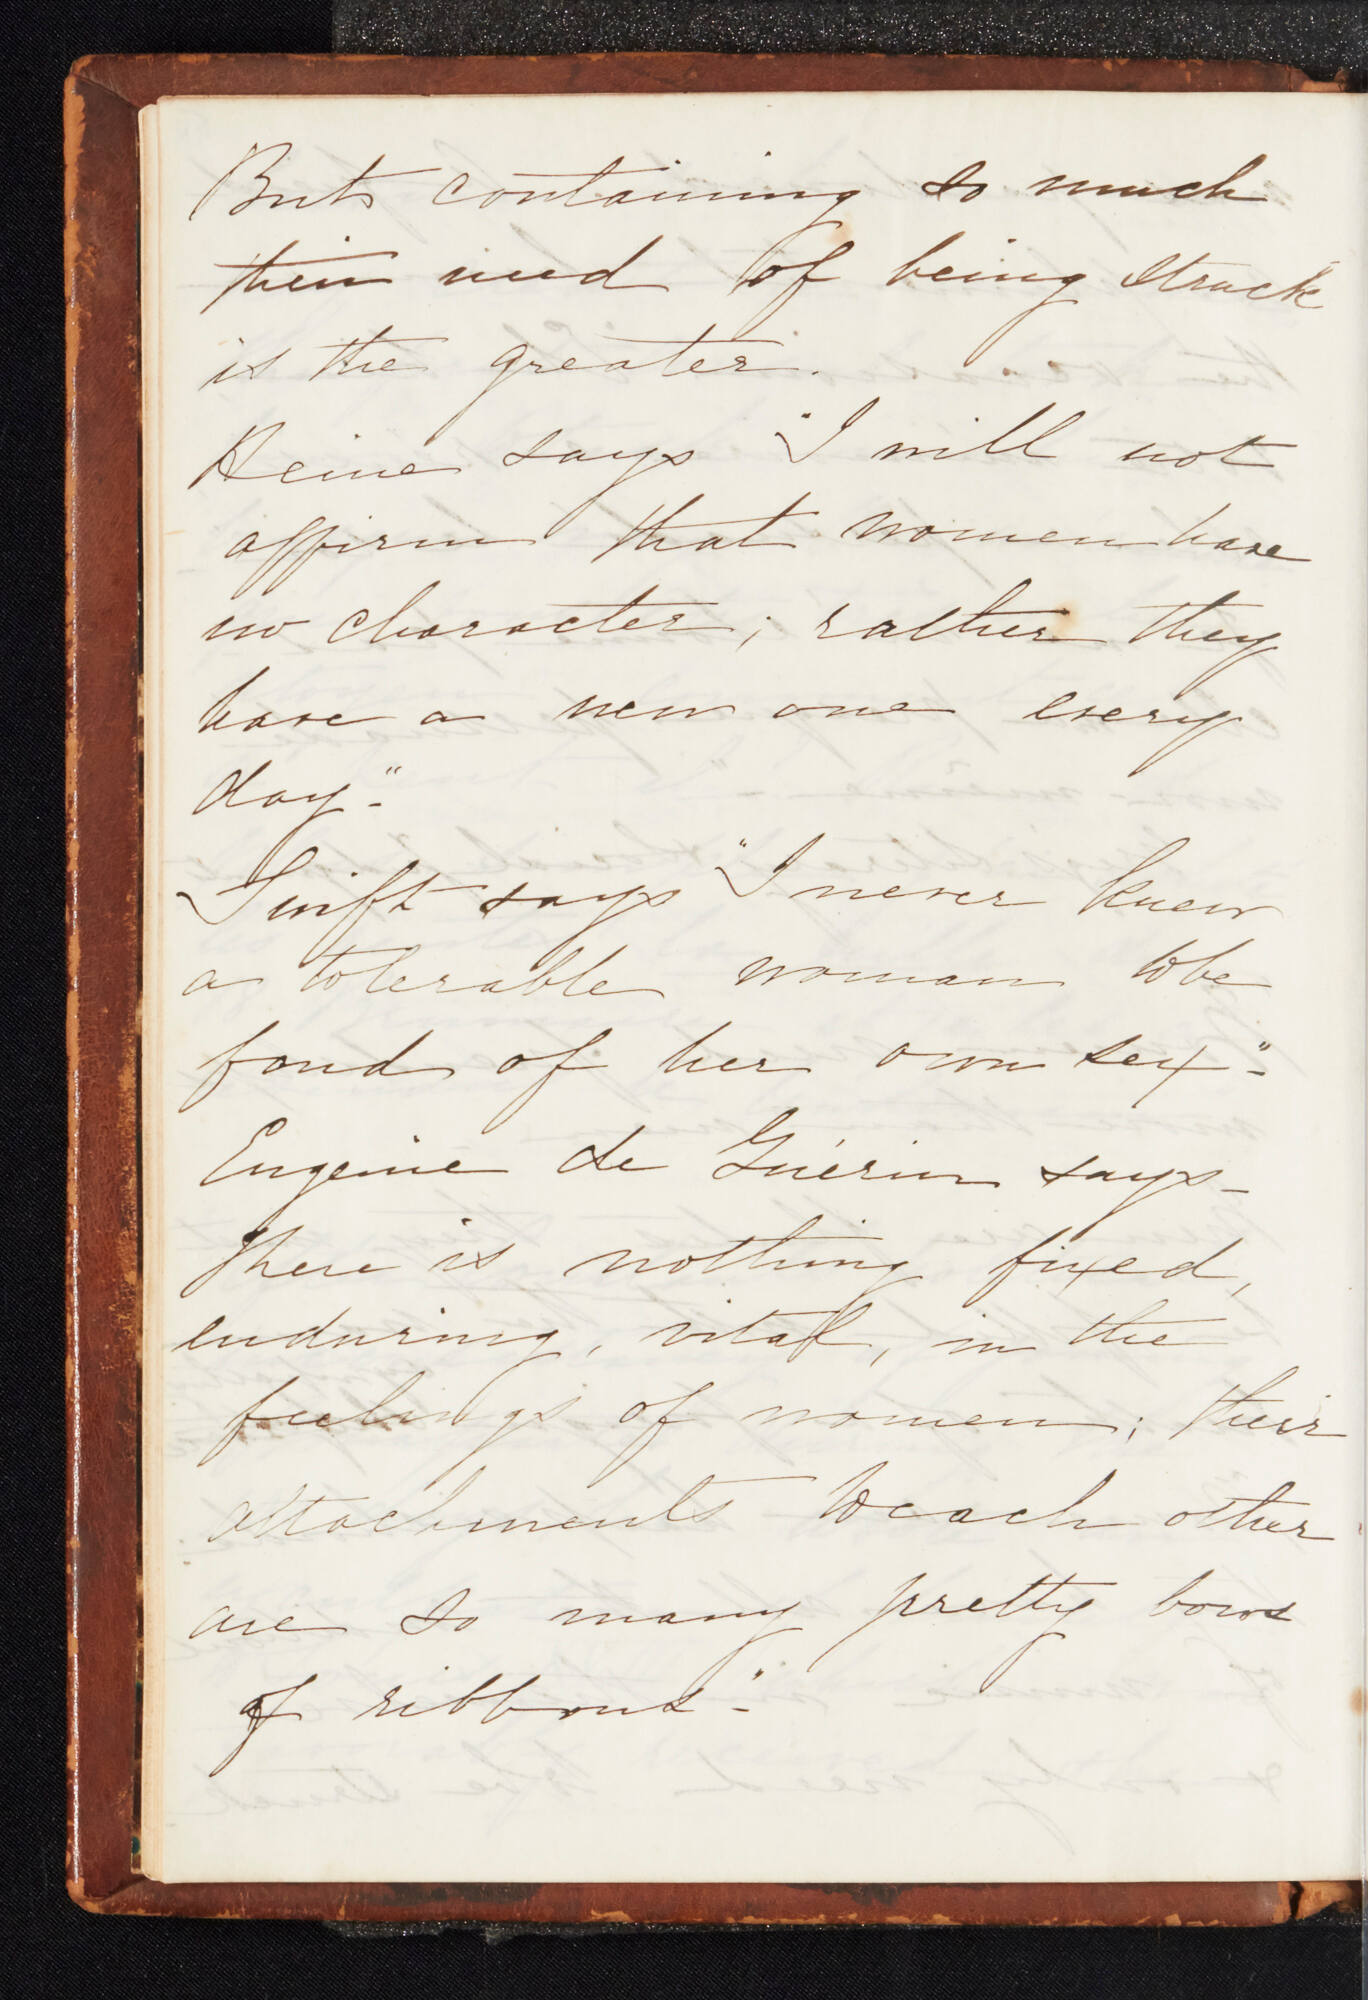 But containing so much
their need of being struck
is the greater.
Heine says "I will not
affirm that women have
no character; rather they
have a new one every
day".
Swift says "I never knew
a tolerable woman to be
fond of her own sex".
Eugenie de Guérin says -
There is nothing fixed,
enduring, vital, in the
feelings of women; their
attachments to each other
are so many pretty bows
of ribbons".